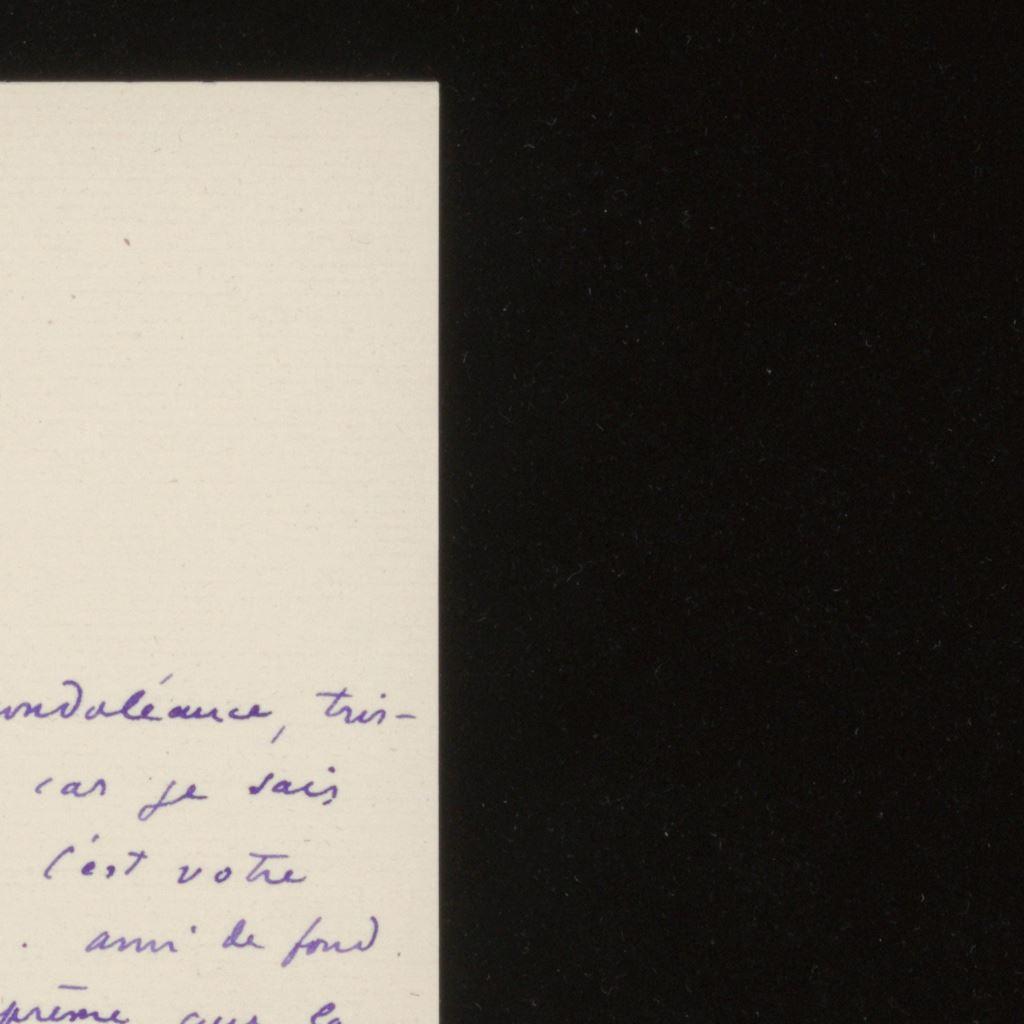 ondoléance, tris-
car je sais
c'est votre
. ami de fond
prême que la